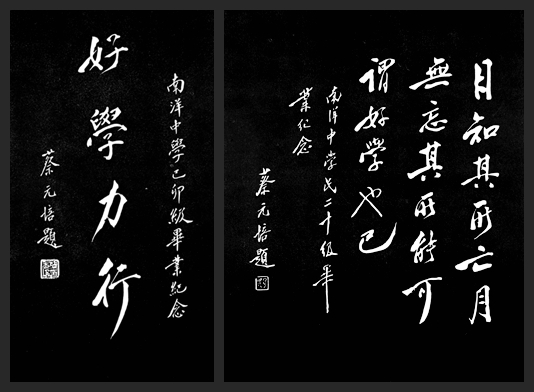 南洋中學己卯級畢業紀念
好學力行
蔡元培題
日知其所亡月
無忘其所能可
謂好學也已
南洋中學民二十級畢
業紀念
蔡元培題